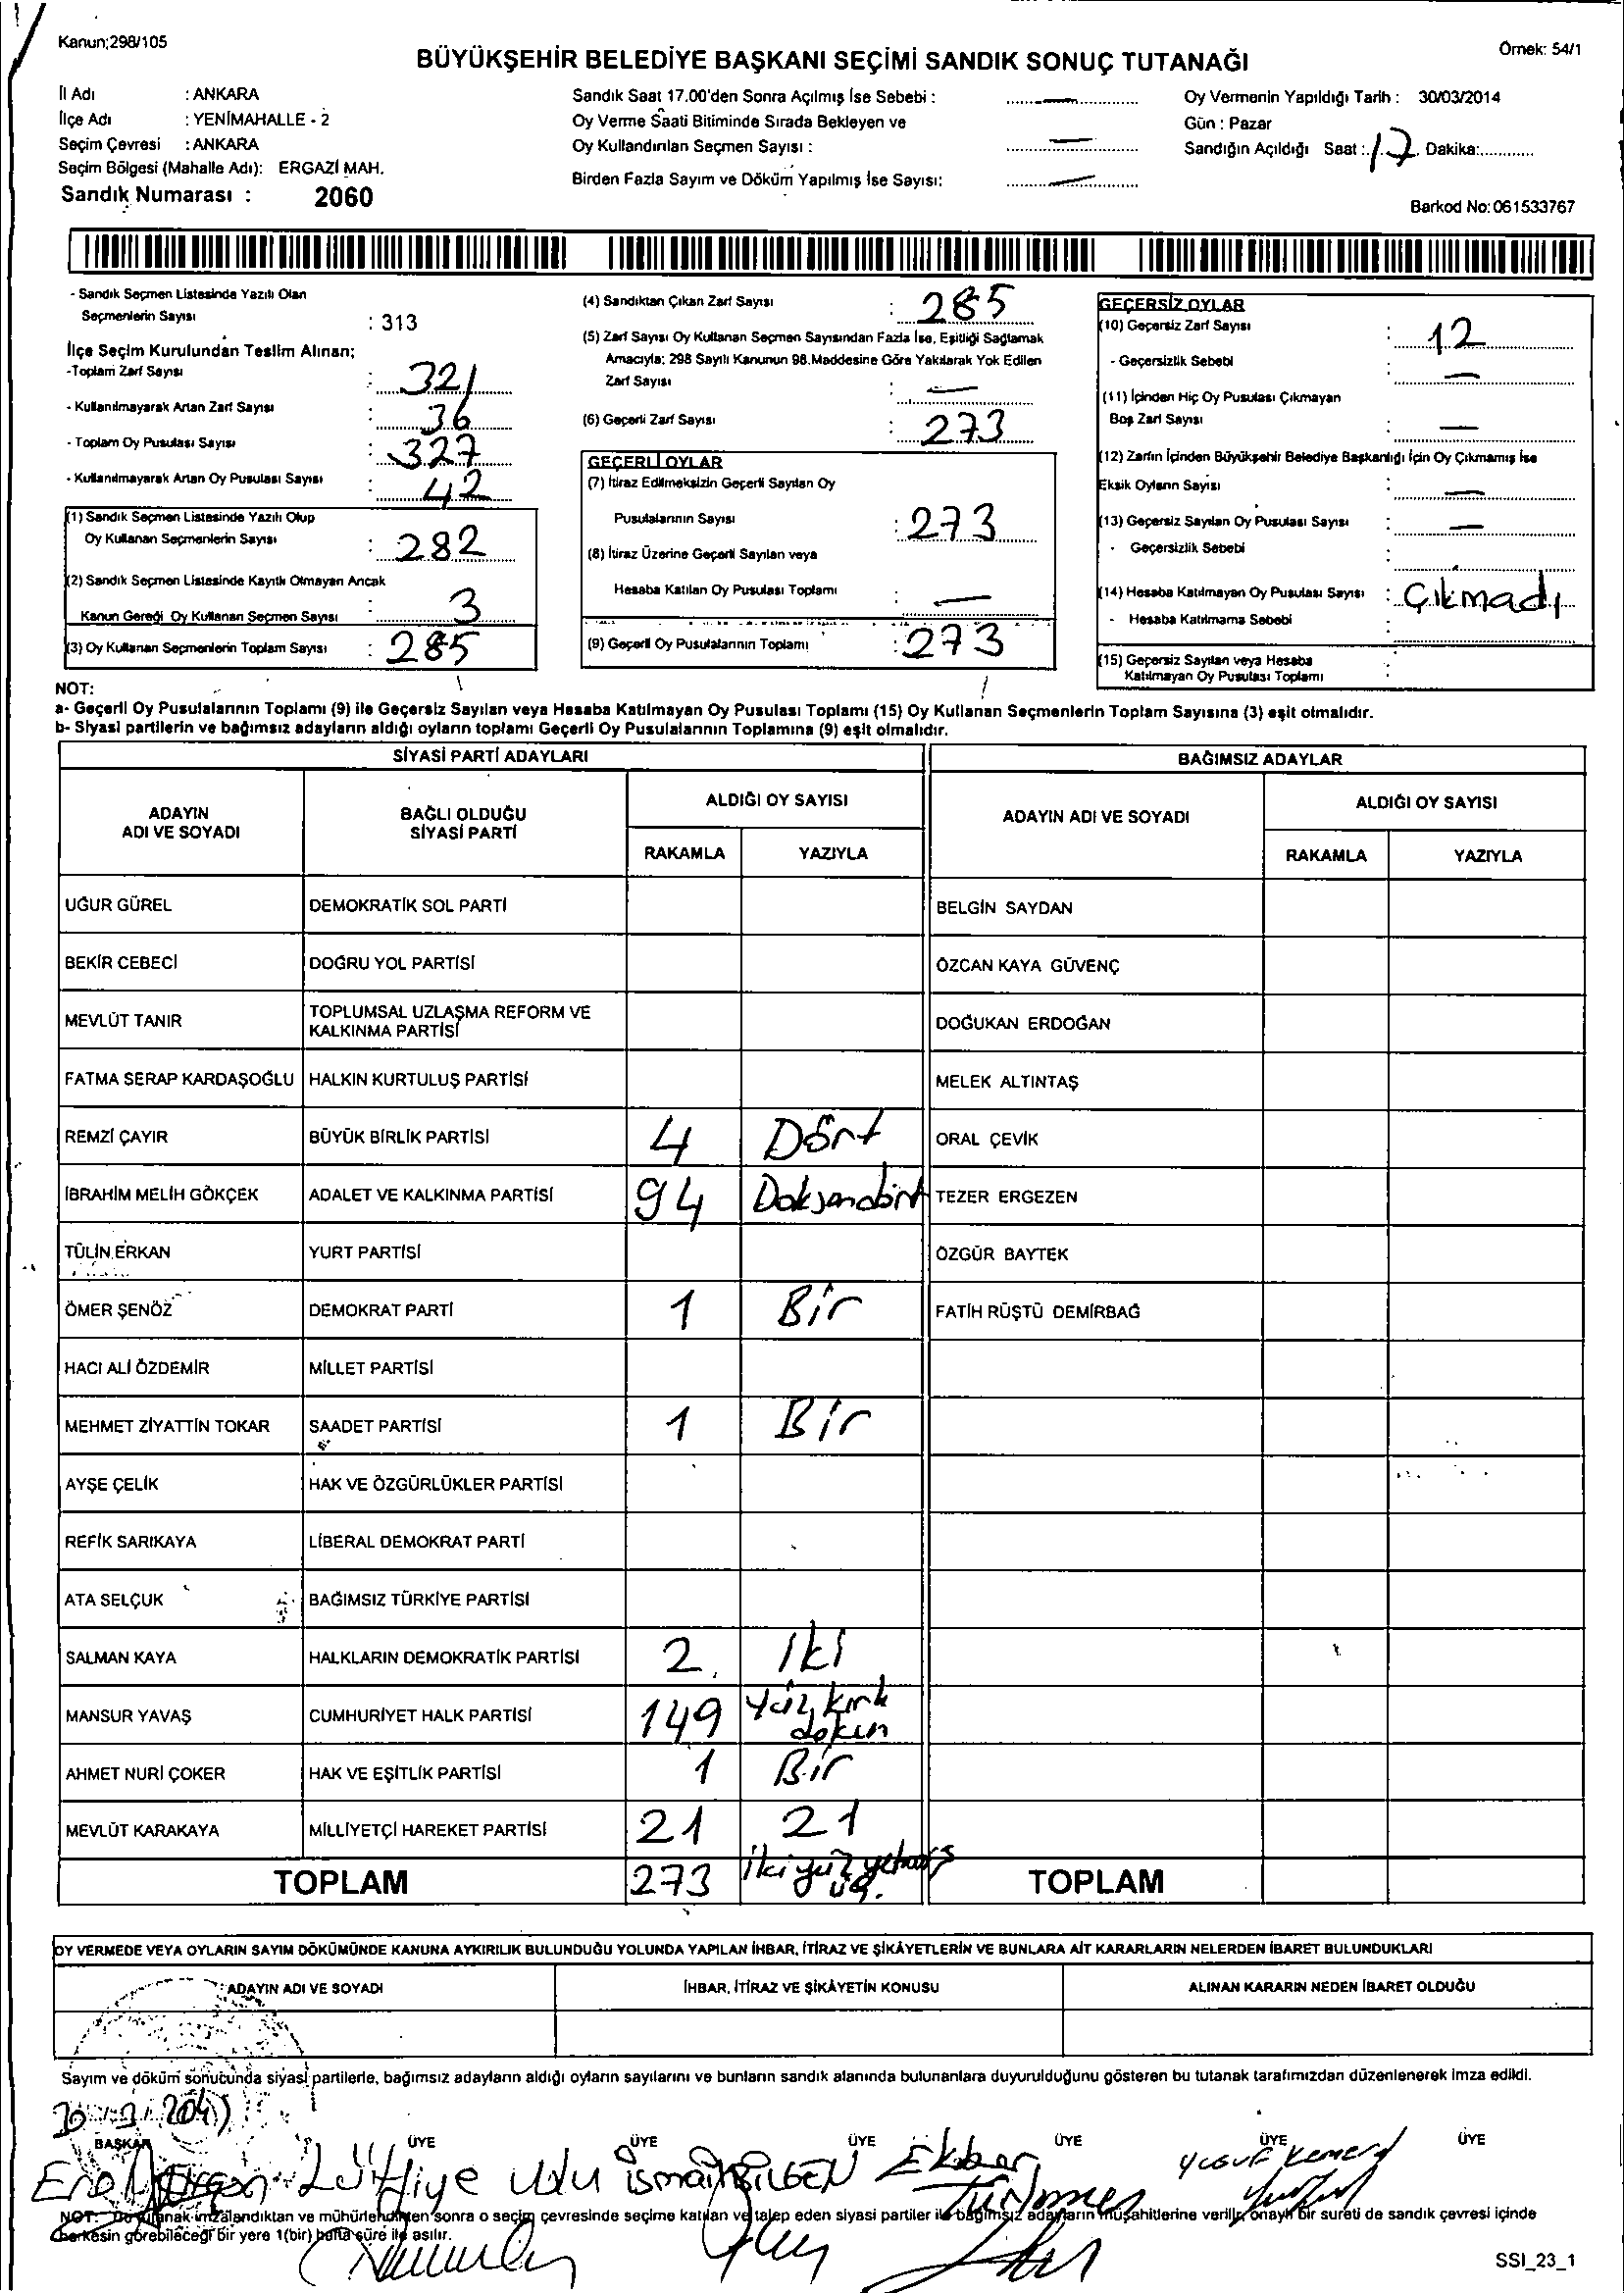 Kanun;298/105
Örnek: 54/1
BÜYÜKŞEHİR BELEDİYE BAŞKANI SEÇİMİ SANDIK SONUÇ TUTANAĞI
İl Adı : ANKARA
İlçe Adı : YENİMAHALLE - 2
Seçim Çevresi : ANKARA
Seçim Bölgesi (Mahalle Adı): ERGAZİ MAH.
Sandık Numarası : 2060
Sandık Saat 17.00'den Sonra Açılmış İse Sebebi : —
Oy Verme Saati Bitiminde Sırada Bekleyen ve
Oy Kullandırılan Seçmen Sayısı : —
Birden Fazla Sayım ve Döküm Yapılmış İse Sayısı: —
Oy Vermenin Yapıldığı Tarih : 30/03/2014
Gün : Pazar
Sandığın Açıldığı Saat : 17 Dakika:............
Barkod No:061533767
- Sandık Seçmen Listesinde Yazılı Olan
Seçmenlerin Sayısı : 313
İlçe Seçim Kurulundan Teslim Alınan;
-Toplam Zarf Sayısı : 321
- Kullanılmayarak Artan Zarf Sayısı : 36
- Toplam Oy Pusulası Sayısı : 327
- Kullanılmayarak Artan Oy Pusulası Sayısı : 42
(1) Sandık Seçmen Listesinde Yazılı Olup
Oy Kullanan Seçmenlerin Sayısı : 282
(2) Sandık Seçmen Listesinde Kayıtlı Olmayan Ancak
Kanun Gereği Oy Kullanan Seçmen Sayısı : 3
(3) Oy Kullanan Seçmenlerin Toplam Sayısı : 285
(4) Sandıktan Çıkan Zarf Sayısı : 285
(5) Zarf Sayısı Oy Kullanan Seçmen Sayısından Fazla İse, Eşitliği Sağlamak
Amacıyla; 298 Sayılı Kanunun 98.Maddesine Göre Yakılarak Yok Edilen
Zarf Sayısı : —
(6) Geçerli Zarf Sayısı : 273
GEÇERLİ OYLAR
(7) İtiraz Edilmeksizin Geçerli Sayılan Oy
Pusulalarının Sayısı : 273
(8) İtiraz Üzerine Geçerli Sayılan veya
Hesaba Katılan Oy Pusulası Toplamı : —
(9) Geçerli Oy Pusulalarının Toplamı : 273
GEÇERSİZ OYLAR
(10) Geçersiz Zarf Sayısı : 12
- Geçersizlik Sebebi : —
(11) İçinden Hiç Oy Pusulası Çıkmayan
Boş Zarf Sayısı : —
(12) Zarfın İçinden Büyükşehir Belediye Başkanlığı İçin Oy Çıkmamış İse
Eksik Oyların Sayısı : —
(13) Geçersiz Sayılan Oy Pusulası Sayısı : —
- Geçersizlik Sebebi :
(14) Hesaba Katılmayan Oy Pusulası Sayısı : Çıkmadı
- Hesaba Katılmama Sebebi :
(15) Geçersiz Sayılan veya Hesaba
Katılmayan Oy Pusulası Toplamı :
NOT:
a- Geçerli Oy Pusulalarının Toplamı (9) ile Geçersiz Sayılan veya Hesaba Katılmayan Oy Pusulası Toplamı (15) Oy Kullanan Seçmenlerin Toplam Sayısına (3) eşit olmalıdır.
b- Siyasi partilerin ve bağımsız adayların aldığı oyların toplamı Geçerli Oy Pusulalarının Toplamına (9) eşit olmalıdır.
SİYASİ PARTİ ADAYLARI BAĞIMSIZ ADAYLAR
ADAYIN ADI VE SOYADI BAĞLI OLDUĞU SİYASİ PARTİ ALDIĞI OY SAYISI ADAYIN ADI VE SOYADI ALDIĞI OY SAYISI
RAKAMLA YAZIYLA RAKAMLA YAZIYLA
UĞUR GÜREL DEMOKRATİK SOL PARTİ BELGİN SAYDAN
BEKİR CEBECİ DOĞRU YOL PARTİSİ ÖZCAN KAYA GÜVENÇ
MEVLÜT TANIR TOPLUMSAL UZLAŞMA REFORM VE KALKINMA PARTİSİ DOĞUKAN ERDOĞAN
FATMA SERAP KARDAŞOĞLU HALKIN KURTULUŞ PARTİSİ MELEK ALTINTAŞ
REMZİ ÇAYIR BÜYÜK BİRLİK PARTİSİ 4 Dört ORAL ÇEVİK
İBRAHİM MELİH GÖKÇEK ADALET VE KALKINMA PARTİSİ 94 Doksandört TEZER ERGEZEN
TÜLİN ERKAN YURT PARTİSİ ÖZGÜR BAYTEK
ÖMER ŞENÖZ DEMOKRAT PARTİ 1 Bir FATİH RÜŞTÜ DEMİRBAĞ
HACI ALİ ÖZDEMİR MİLLET PARTİSİ
MEHMET ZİYATTİN TOKAR SAADET PARTİSİ 1 Bir
AYŞE ÇELİK HAK VE ÖZGÜRLÜKLER PARTİSİ
REFİK SARIKAYA LİBERAL DEMOKRAT PARTİ
ATA SELÇUK BAĞIMSIZ TÜRKİYE PARTİSİ
SALMAN KAYA HALKLARIN DEMOKRATİK PARTİSİ 2 İki
MANSUR YAVAŞ CUMHURİYET HALK PARTİSİ 149 Yüz kırk dokuz
AHMET NURİ ÇOKER HAK VE EŞİTLİK PARTİSİ 1 Bir
MEVLÜT KARAKAYA MİLLİYETÇİ HAREKET PARTİSİ 21 21
TOPLAM 273 ikiyüz yetmiş üç. TOPLAM
OY VERMEDE VEYA OYLARIN SAYIM DÖKÜMÜNDE KANUNA AYKIRILIK BULUNDUĞU YOLUNDA YAPILAN İHBAR, İTİRAZ VE ŞİKÂYETLERİN VE BUNLARA AİT KARARLARIN NELERDEN İBARET BULUNDUKLARI
ADAYIN ADI VE SOYADI İHBAR, İTİRAZ VE ŞİKÂYETİN KONUSU ALINAN KARARIN NEDEN İBARET OLDUĞU
Sayım ve döküm sonucunda siyasi partilerle, bağımsız adayların aldığı oyların sayılarını ve bunların sandık alanında bulunanlara duyurulduğunu gösteren bu tutanak tarafımızdan düzenlenerek imza edildi.
BAŞKAN ÜYE ÜYE ÜYE ÜYE ÜYE ÜYE
Lütfiye Ulu İsmail BİLGEN Ekber Türkmen Yusuf
NOT: Bu tutanak imzalandıktan ve mühürlendikten sonra o seçim çevresinde seçime katılan ve talep eden siyasi partiler ile bağımsız adayların müşahitlerine verilir, onaylı bir sureti de sandık çevresi içinde
herkesin görebileceği bir yere 1(bir) hafta süre ile asılır.
SSI_23_1